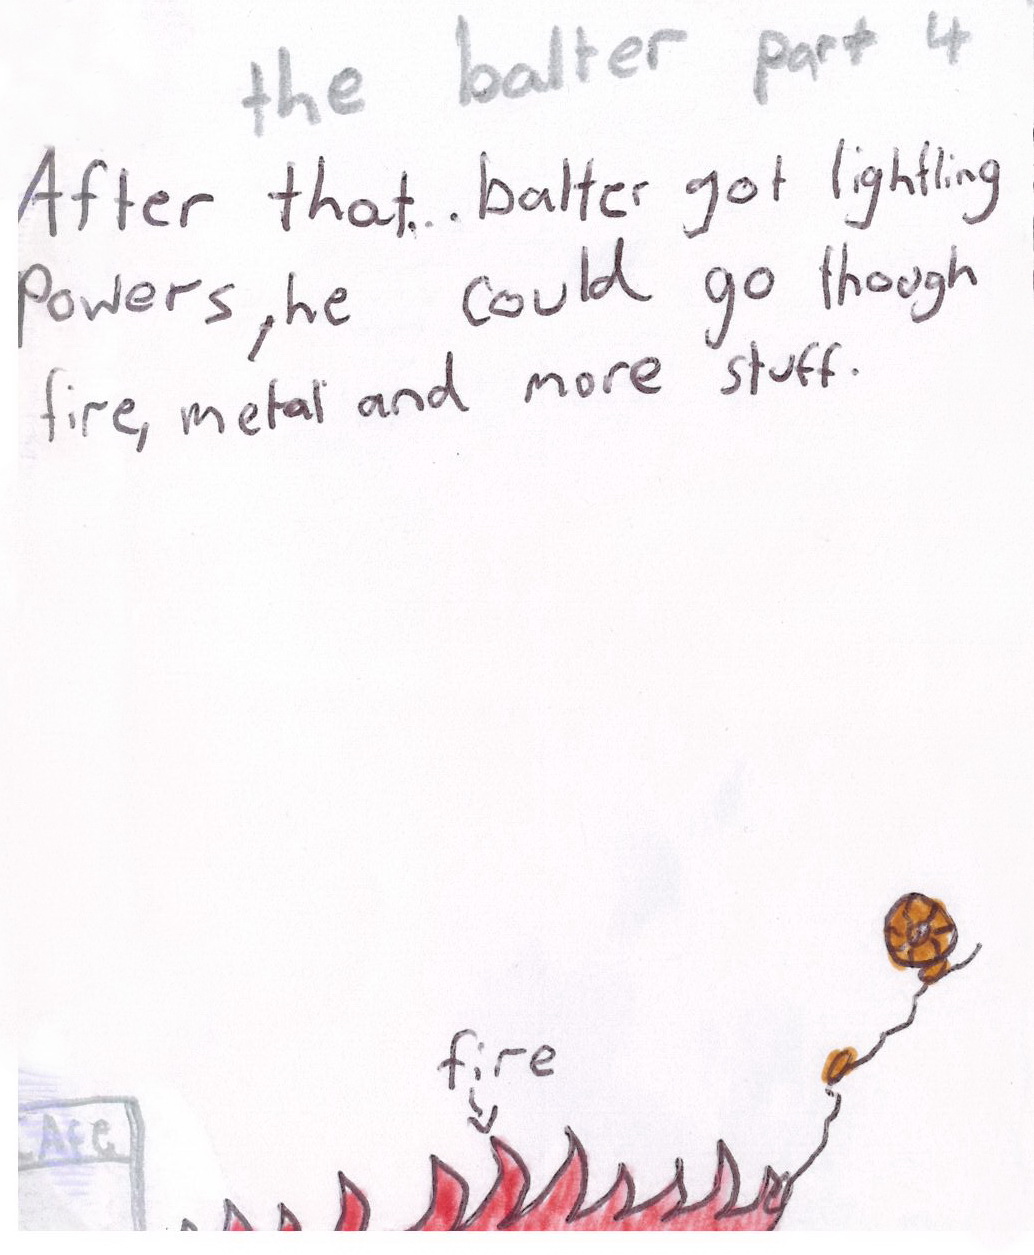 the balter part 4
After that... balter got lightling
Powers, he could go though
fire, metal and more stuff.
fire
CAFE